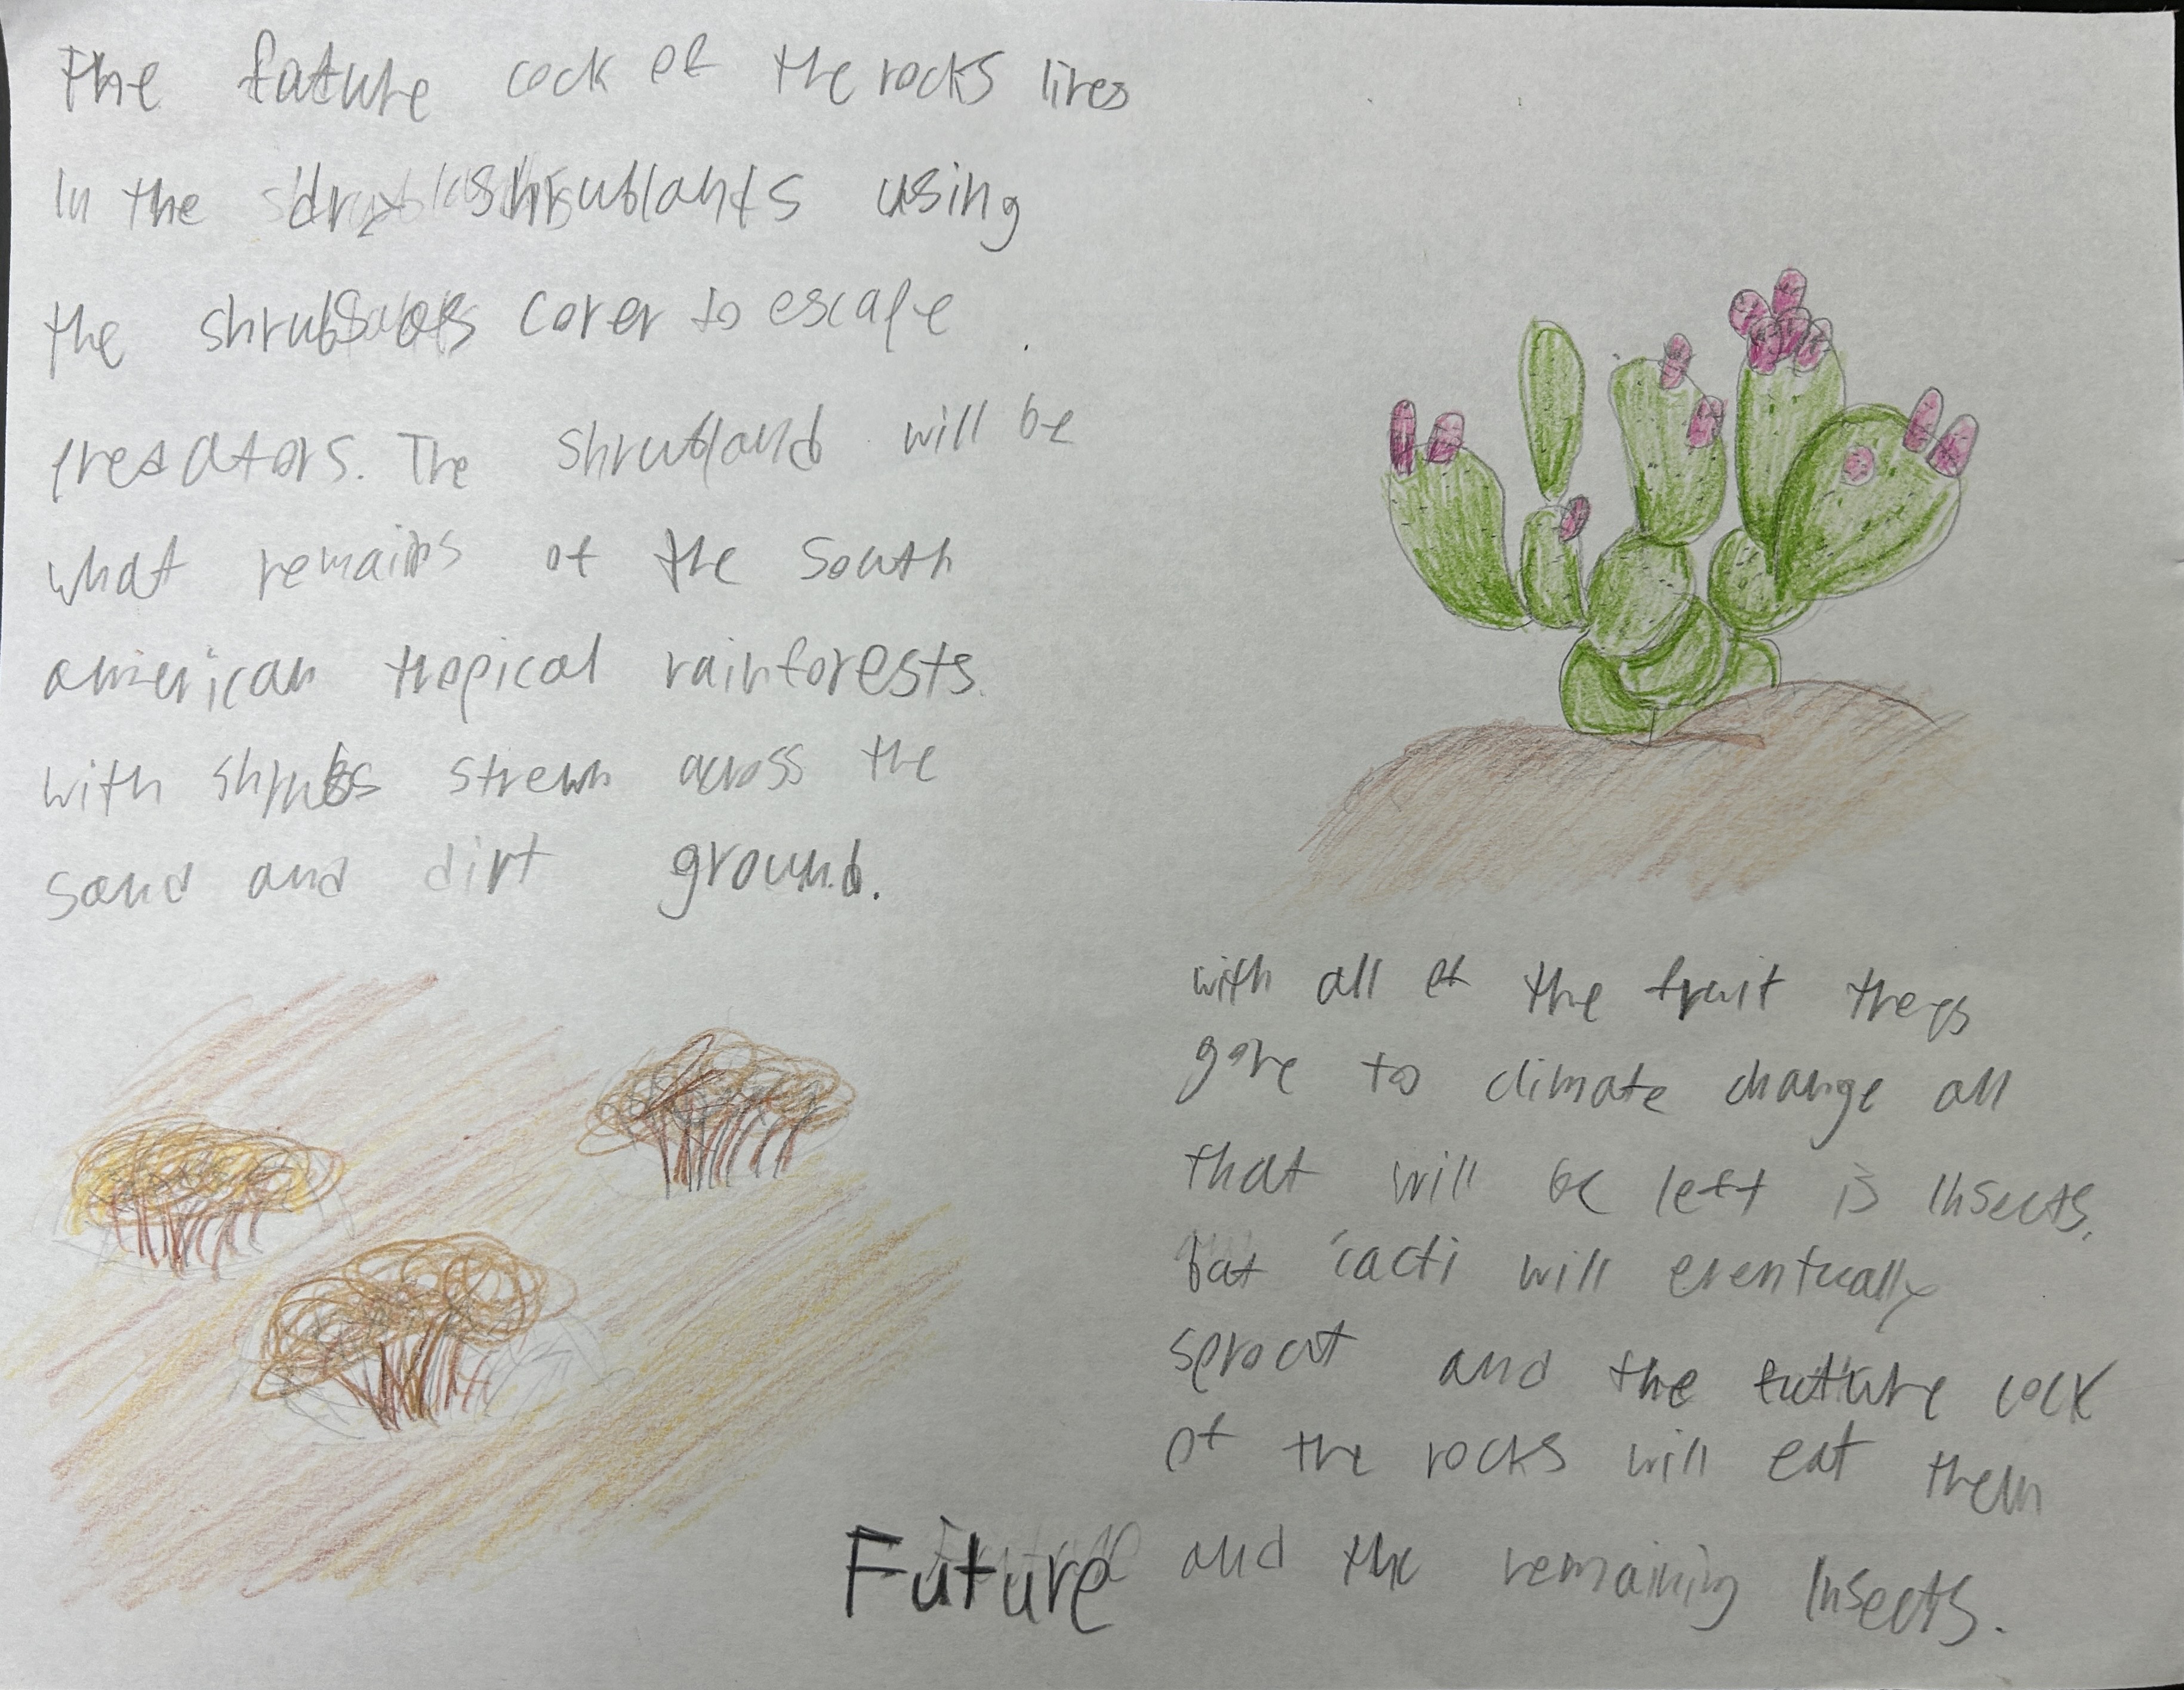 The future cock of the rocks lives
In the dry shrublands using
the shrubs cover to escape
predators. The shrubland will be
what remains of the South
american tropical rainforests.
with shrubs strewn across the
sand and dirt ground.
with all of the fruit trees
gone to climate change all
that will be left is Insects.
but cacti will eventually
sprout and the future cock
of the rocks will eat them
and the remaining Insects.
Future